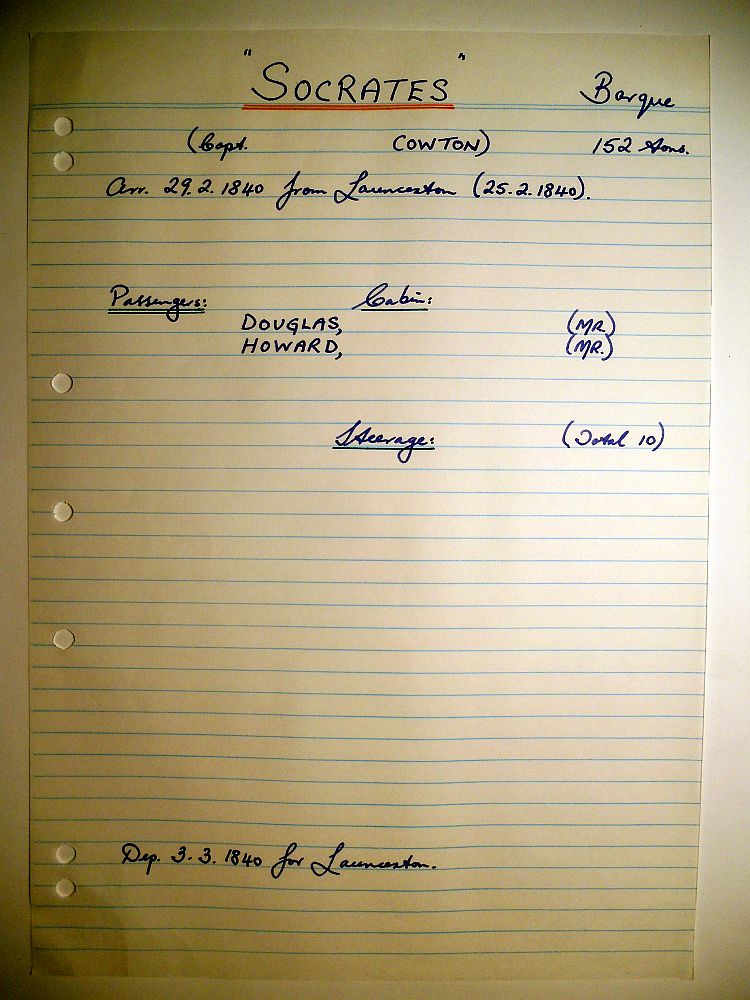 "SOCRATES" Barque
(Capt. COWTON) 152 tons.
Arr. 29.2.1840 from Launceston (25.2.1840).
Passengers: Cabin:
DOUGLAS, (MR)
HOWARD, (MR.)
Steerage: (Total 10)
Dep. 3.3.1840 for Launceston.